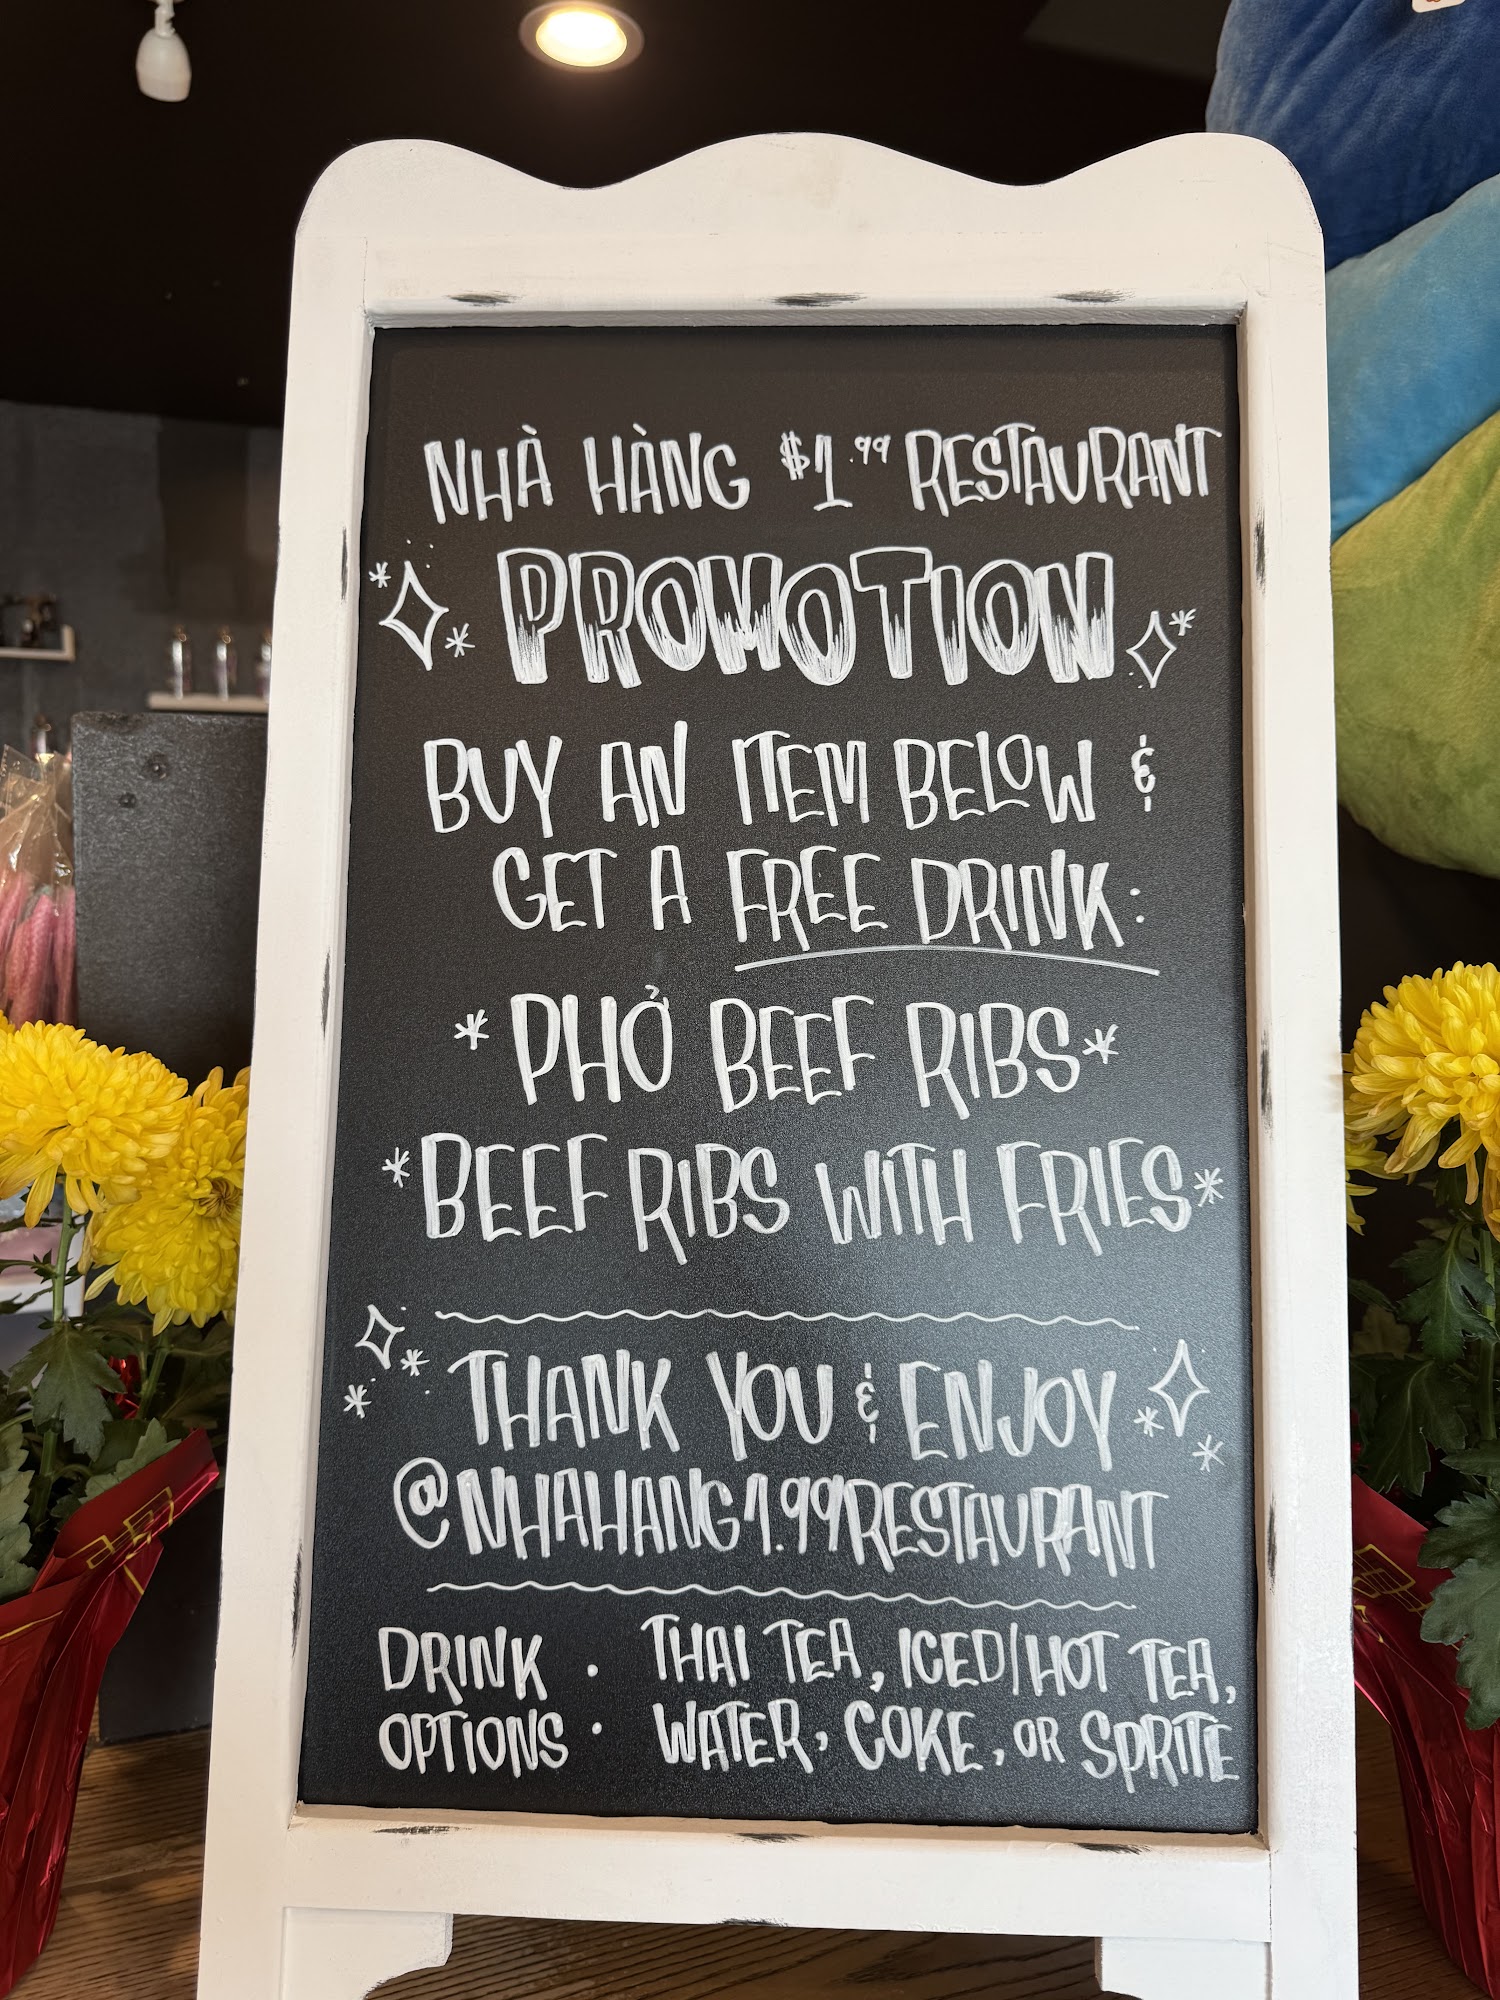 NHÀ HÀNG $1.99 RESTAURANT
PROMOTION
BUY AN ITEM BELOW &
GET A FREE DRINK:
* PHỞ BEEF RIBS *
* BEEF RIBS WITH FRIES *
THANK YOU & ENJOY
@NHAHANG1.99RESTAURANT
DRINK OPTIONS: THAI TEA, ICED/HOT TEA,
WATER, COKE, OR SPRITE